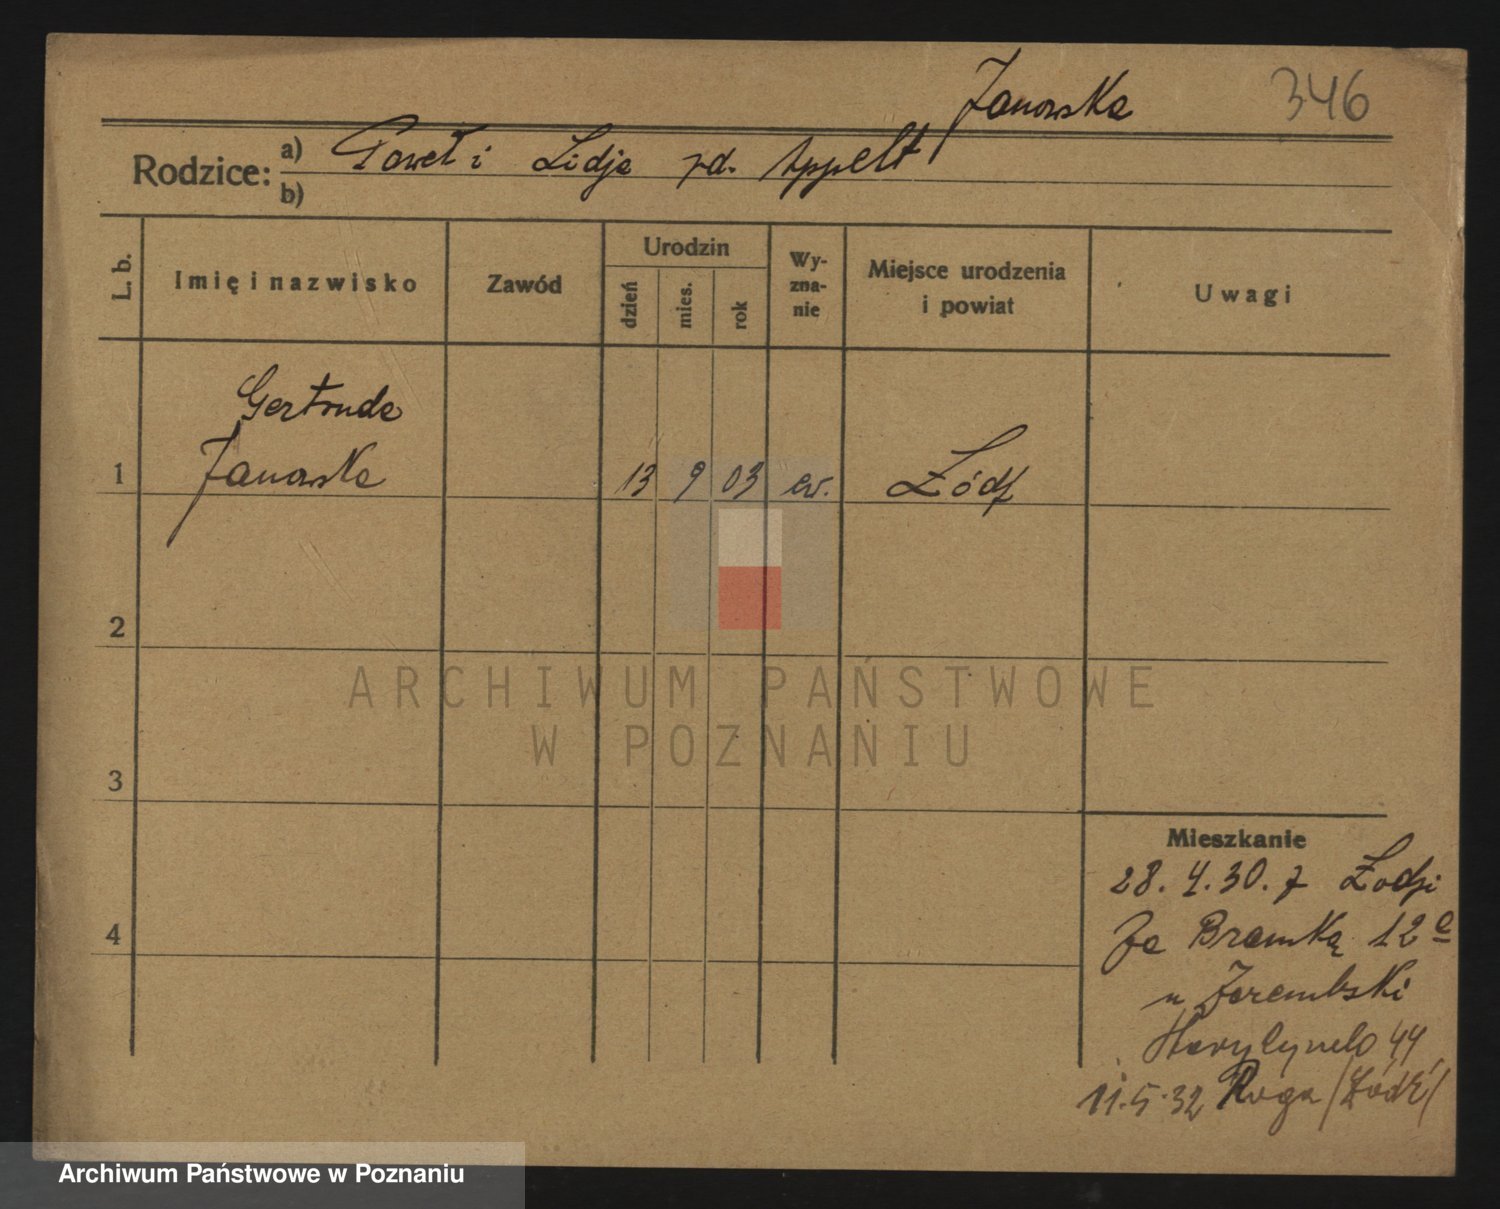 Janowska
346
Rodzice: a) Paweł i Lidja zd. Appelt
b)
L. b.
Imię i nazwisko
Zawód
Urodzin
dzień
mies.
rok
Wy-
zna-
nie
Miejsce urodzenia
i powiat
Uwagi
Gertruda
1 Janowska 13 9 03 ew. Łódź
2
3
4
Mieszkanie
28.4.30. z Łodzi
Za Bramką 12a
u Zarembski
44
11.5.32 /Łódź/
ARCHIWUM PAŃSTWOWE
W POZNANIU
Archiwum Państwowe w Poznaniu